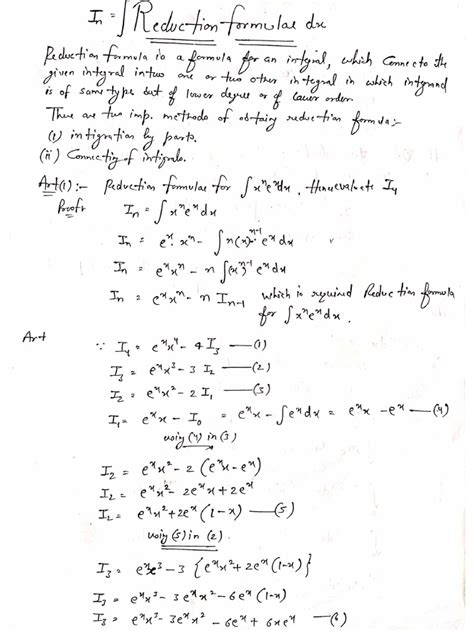 Iₙ = ∫ Reduction formulae dx
Reduction formula is a formula for an integral, which connects the
given integral intwo one or two other integral in which integrand
is of same type but of lower degree or of lower order
There are two imp. methods of obtaing reduction formula:-
(i) intigration by parts.
(ii) Connecting of integrals.
Art(1):- Reduction formulae for ∫xⁿeˣdx. Hence evaluate I₄
Proof:
Iₙ = ∫xⁿeˣdx
Iₙ = eˣ.xⁿ - ∫n(x)ⁿ⁻¹eˣdx
Iₙ = eˣxⁿ - n∫(x)ⁿ⁻¹eˣdx
Iₙ = eˣxⁿ - n Iₙ₋₁ which is required Reduction formula
for ∫xⁿeˣdx.
Art
∵ I₄ = eˣx⁴ - 4I₃ —(1)
I₃ = eˣx³ - 3I₂ —(2)
I₂ = eˣx² - 2I₁ —(3)
I₁ = eˣx - I₀ = eˣx - ∫eˣdx = eˣx - eˣ —(4)
using (4) in (3)
I₂ = eˣx² - 2(eˣx - eˣ)
I₂ = eˣx² - 2eˣx + 2eˣ
I₂ = eˣx² + 2eˣ(1-x) —(5)
using (5) in (2).
I₃ = eˣx³ - 3{eˣx² + 2eˣ(1-x)}
I₃ = eˣx³ - 3eˣx² - 6eˣ(1-x)
I₃ = eˣx³ - 3eˣx² - 6eˣ + 6xeˣ —(6)